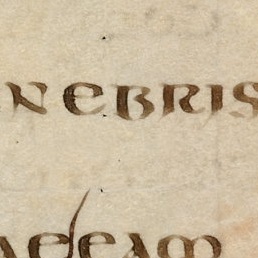 nebris
adeam